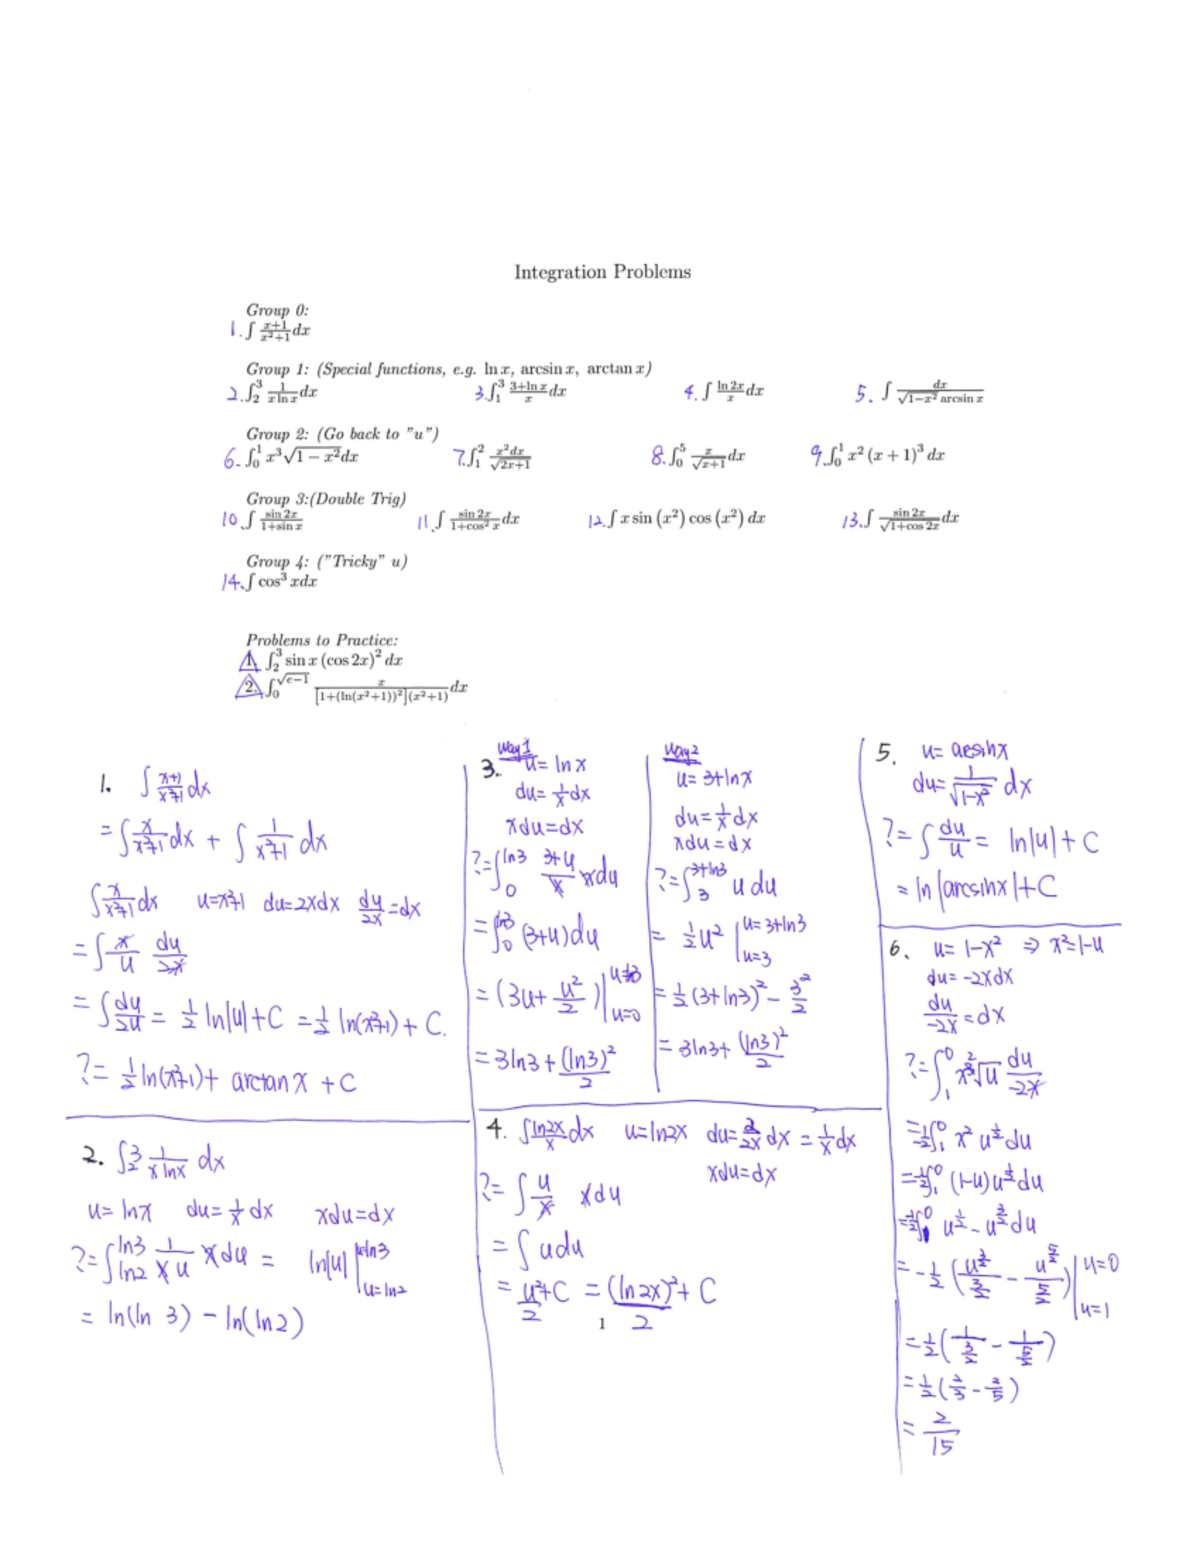 Integration Problems
Group 0:
1. ∫ (x+1)/(x²+1) dx
Group 1: (Special functions, e.g. ln x, arcsin x, arctan x)
2. ∫₂³ 1/(x ln x) dx 3. ∫₁³ (3+ln x)/x dx 4. ∫ (ln 2x)/x dx 5. ∫ dx/(√(1−x²) arcsin x)
Group 2: (Go back to "u")
6. ∫₀¹ x³√(1−x²) dx 7. ∫₁² x²dx/√(2x+1) 8. ∫₀⁵ x/√(x+1) dx 9. ∫₀¹ x²(x+1)³ dx
Group 3:(Double Trig)
10. ∫ sin 2x/(1+sin x) 11. ∫ sin 2x/(1+cos² x) dx 12. ∫ x sin (x²) cos (x²) dx 13. ∫ sin 2x/√(1+cos 2x) dx
Group 4: ("Tricky" u)
14. ∫ cos³ xdx
Problems to Practice:
1. ∫₂³ sin x (cos 2x)² dx
2. ∫₀^√(e−1) x/([1+(ln(x²+1))²](x²+1)) dx
1. ∫ (x+1)/(x²+1) dx
= ∫ x/(x²+1) dx + ∫ 1/(x²+1) dx
∫ x/(x²+1) dx u=x²+1 du=2xdx du/2x = dx
= ∫ x/u du/2x
= ∫ du/2u = 1/2 ln|u|+C = 1/2 ln(x²+1)+ C.
?= 1/2 ln(x²+1)+ arctan x + C
2. ∫₂³ 1/(x lnx) dx
u= lnx du= 1/x dx xdu=dx
?= ∫_ln2^ln3 1/(x u) xdu = ln|u| |_u=ln2^u=ln3
= ln(ln 3) − ln(ln2)
3. way1
u= ln x
du= 1/x dx
xdu=dx
?= ∫₀^ln3 (3+u)/x xdu
= ∫₀^ln3 (3+u)du
= (3u+ u²/2)|_u=0^u=ln3
= 3ln3 + (ln3)²/2
way2
u= 3+lnx
du= 1/x dx
xdu=dx
?= ∫₃^3+ln3 u du
= 1/2 u² |_u=3^u=3+ln3
= 1/2 (3+ln3)² − 3²/2
= 3ln3+ (ln3)²/2
4. ∫ (ln2x)/x dx u=ln2x du= 2/2x dx = 1/x dx
xdu=dx
?= ∫ u/x xdu
= ∫ udu
= u²/2 +C = (ln2x)²/2 + C
1
5. u= arcsinx
du= 1/√(1−x²) dx
?= ∫ du/u = ln|u|+ C
= ln |arcsinx|+C
6. u= 1−x² ⇒ x²=1−u
du= −2xdx
du/−2x = dx
?= ∫₁⁰ x³√u du/−2x
= −1/2 ∫₁⁰ x² u^½ du
= −1/2 ∫₁⁰ (1−u)u^½ du
= −1/2 ∫₁⁰ u^½ − u^(3/2) du
= −1/2 (u^(3/2)/(3/2) − u^(5/2)/(5/2))|_u=1^u=0
= 1/2 (1/(3/2) − 1/(5/2))
= 1/2 (2/3 − 2/5)
= 2/15